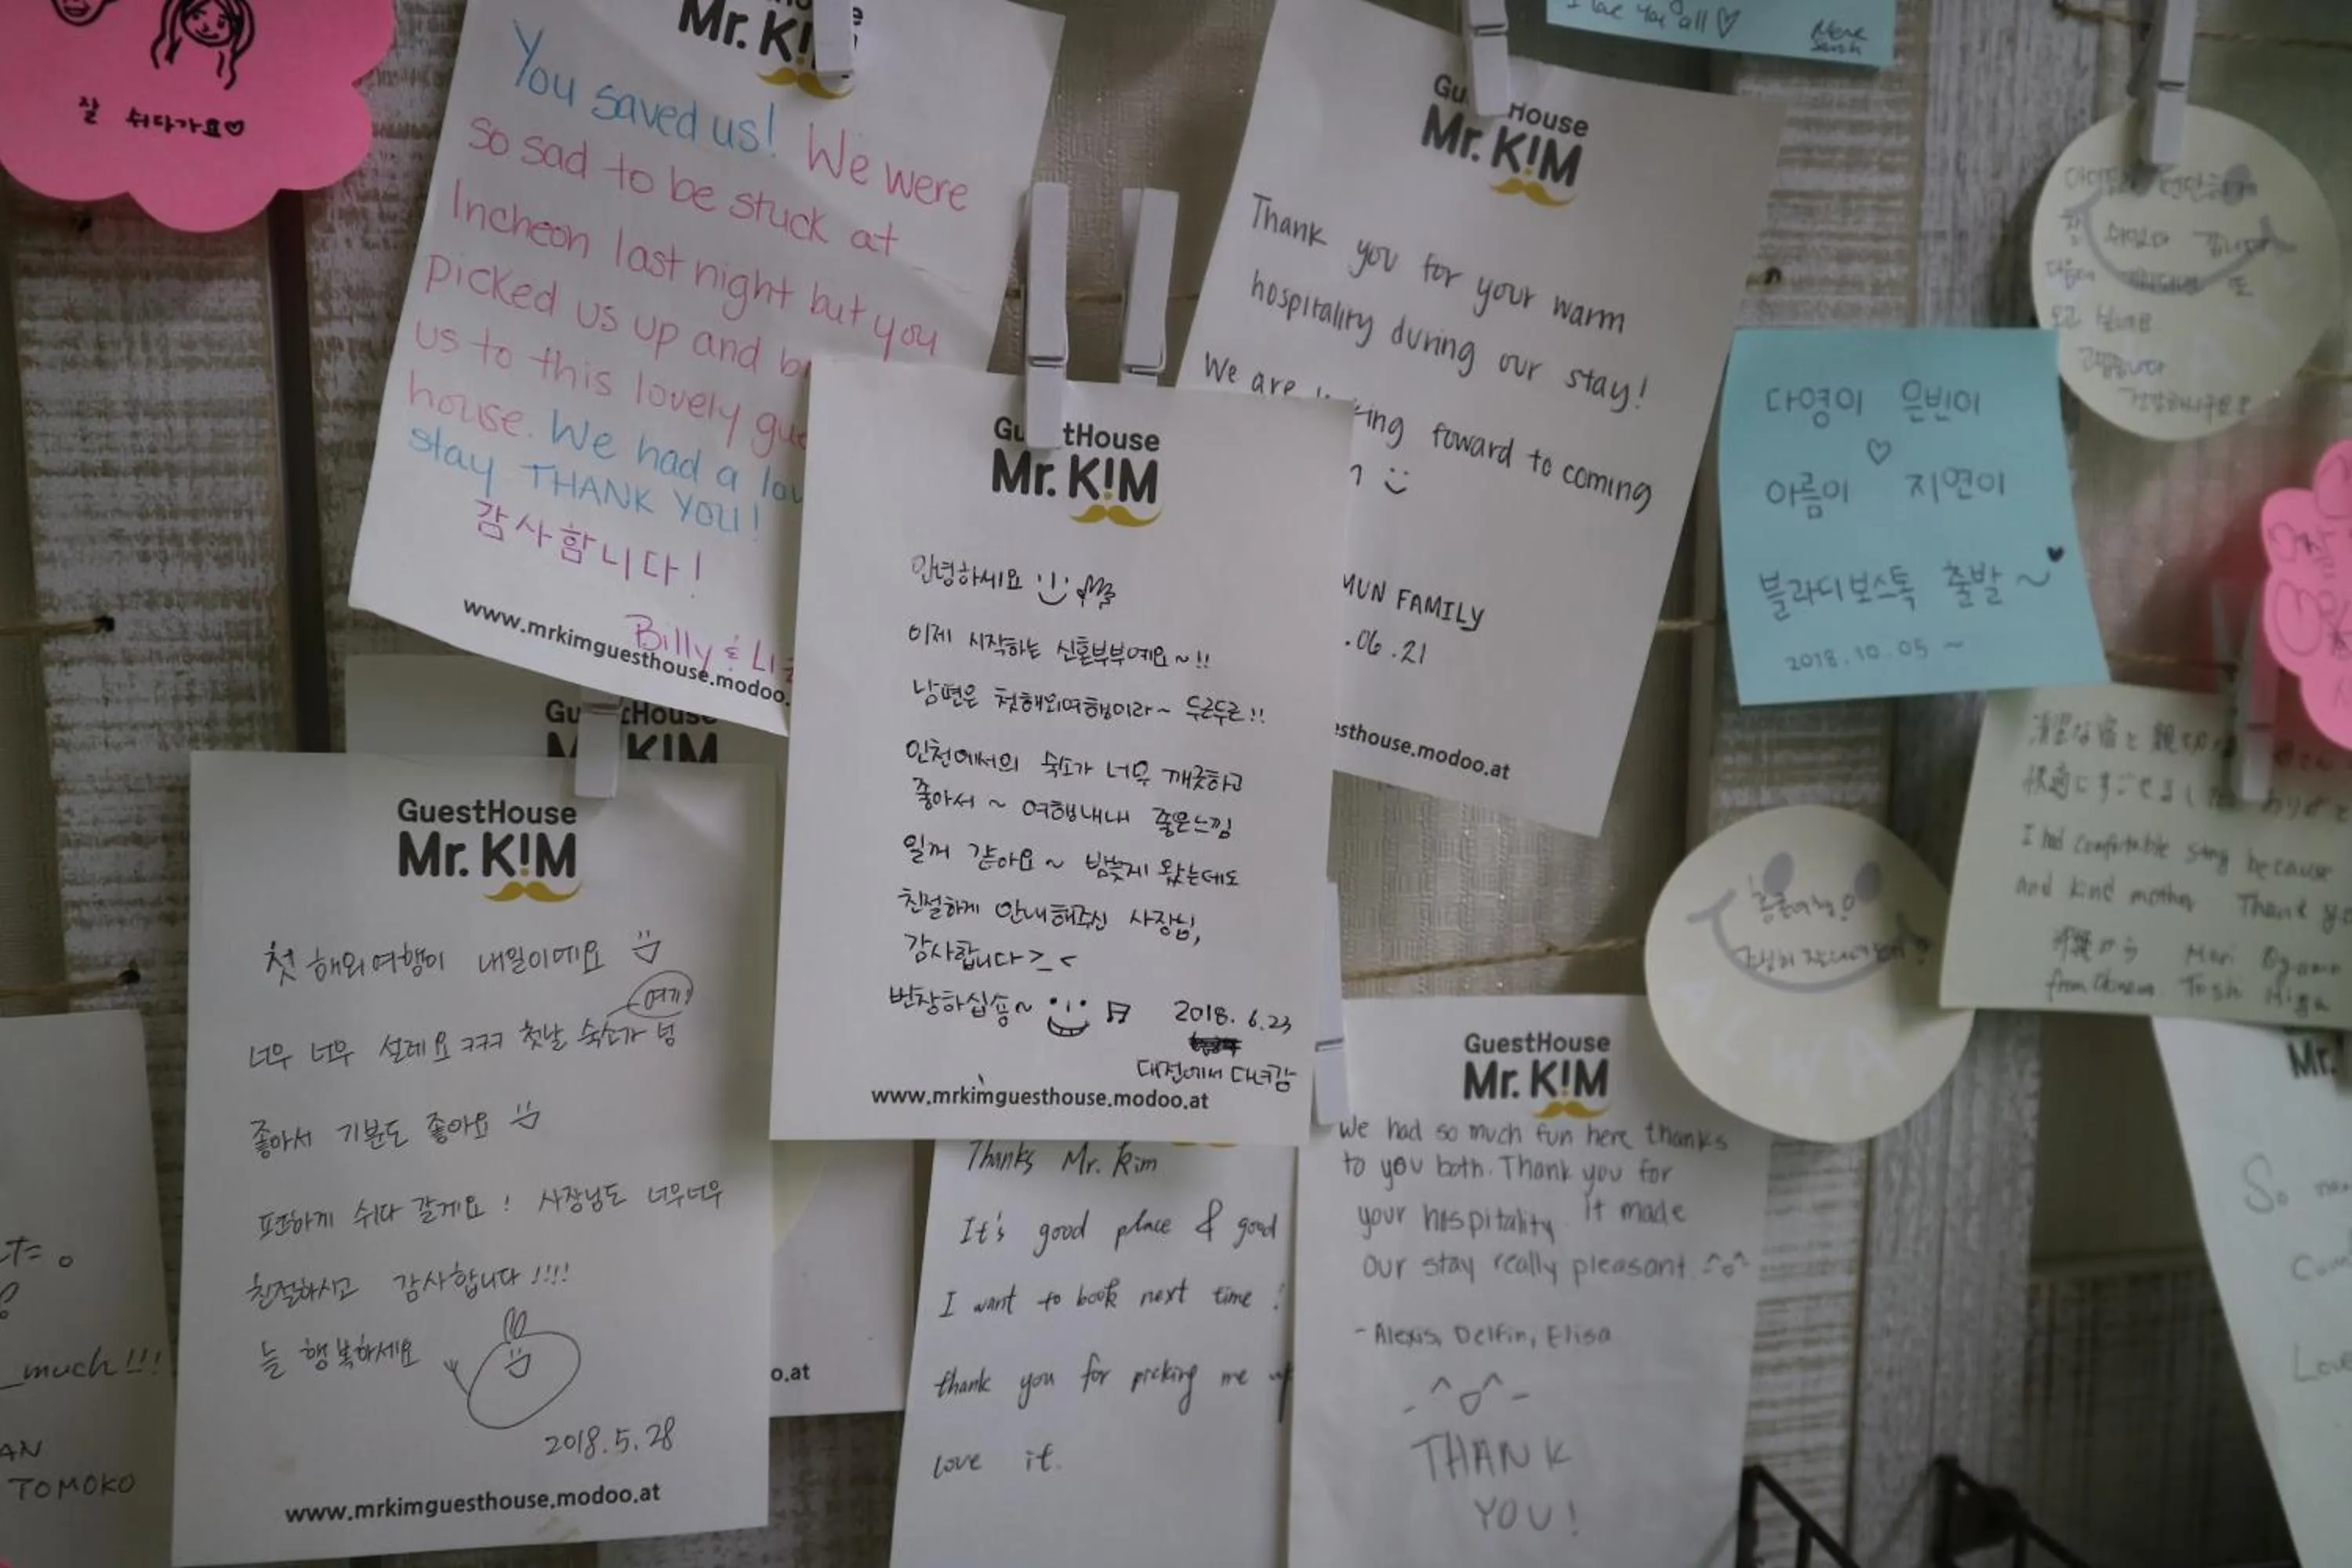 잘 쉬다가요♡
Mr. K!M
You saved us! We were
so sad to be stuck at
Incheon last night but you
picked us up and
us to this lovely
house. We had a
stay THANK YOU!
감사함니다!
Billy &
www.mrkimguesthouse.modoo.
House
Mr. K!M
Thank you for your warm
hospitality during our stay!
We are foward to coming
:)
MUN FAMILY
.06.21
esthouse.modoo.at
I love you all ♡
다영이 은빈이
♡
아름이 지연이
블라디보스톡 출발~♥
2018.10.05 ~
GuestHouse
Mr. K!M
안녕하세요
이제 시작하는 신혼부부예요~!!
남편은 첫해외여행이라~ 두근두근!!
인천에서의 숙소가 너무 깨끗하고
좋아서 ~ 여행내내 좋은느낌
일꺼 같아요~ 밤늦게 왔는데도
친절하게 안내해주신 사장님,
감사합니다>_<
번창하십숑~ 2018. 6.23
대전에서 다녀감
www.mrkimguesthouse.modoo.at
House
K!M
GuestHouse
Mr. K!M
첫 해외여행이 내일이에요
여기!
너무 너무 설레요ㅋㅋㅋ 첫날 숙소가 넘
좋아서 기분도 좋아요
편하게 쉬다 갈게요! 사장님도 너무너무
친절하시고 감사합니다!!!!
늘 행복하세요
2018.5.28
www.mrkimguesthouse.modoo.at
much!!!
TOMOKO
o.at
Thanks Mr. Kim
It's good place & good
I want to book next time!
thank you for picking me up
love it.
GuestHouse
Mr. K!M
We had so much fun here thanks
to you both. Thank you for
your hospitality it made
our stay really pleasant. ^o^
-Alexis, Delfin, Elisa
THANK
YOU!
I had comfortable stay because
and kind mother Thank
Mr.
So
Love